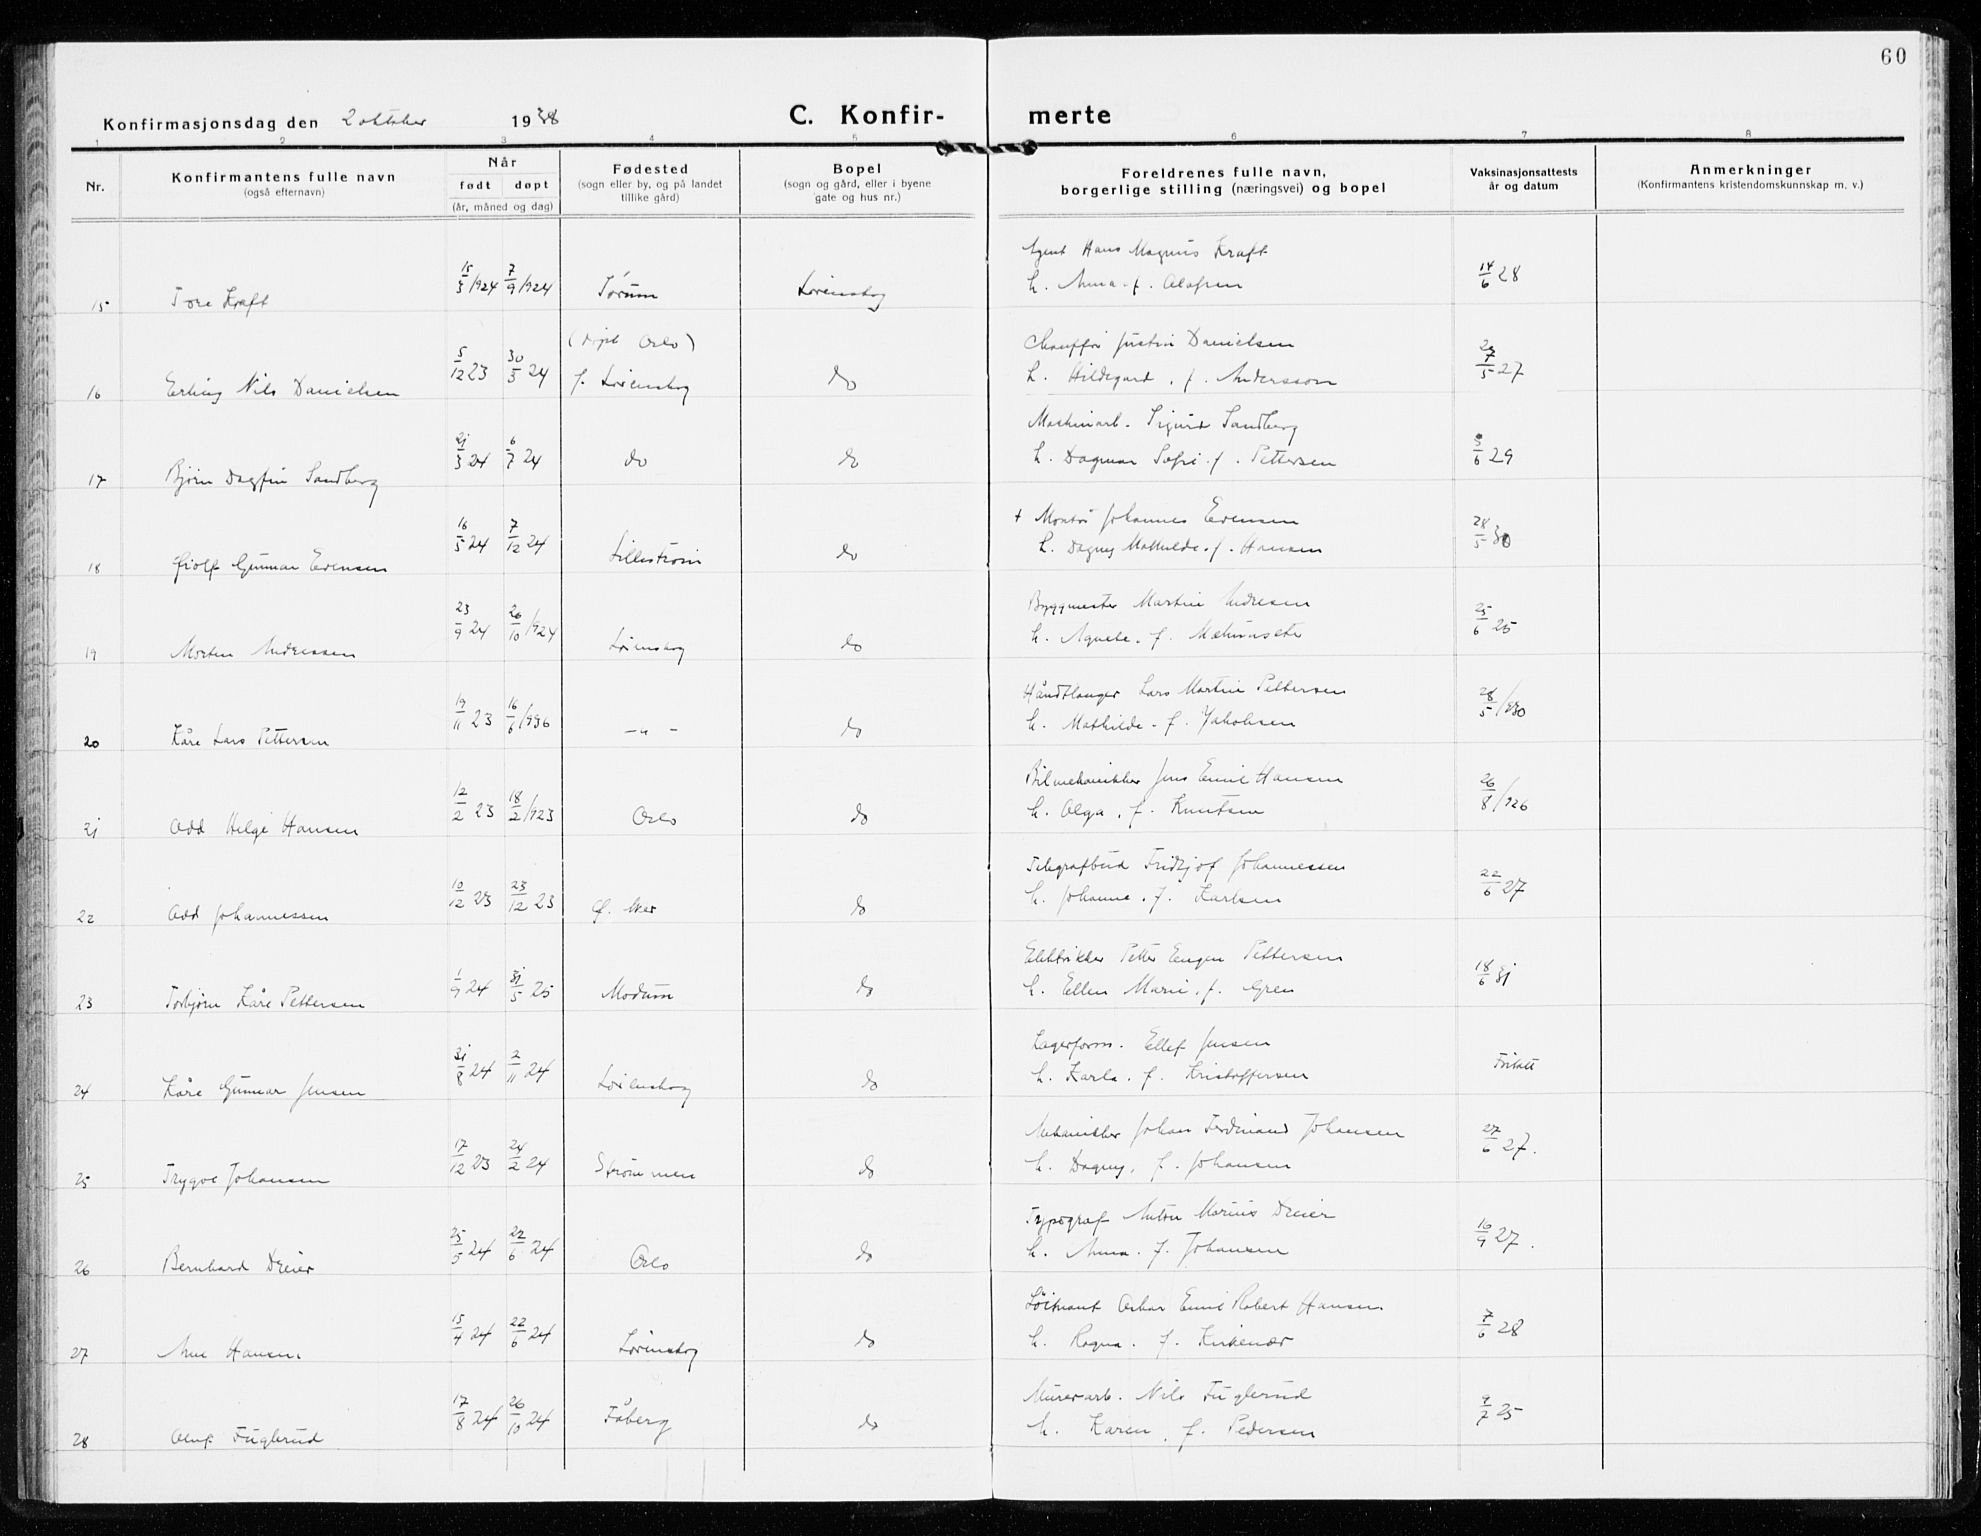 60
Konfirmasjonsdag den 2 oktober 1938
C. Konfir- merte
1 2 3 4 5 6 7 8
Nr.
Konfirmantens fulle navn
(også efternavn)
Når
født døpt
(år, måned og dag)
Fødested
(sogn eller by, og på landet
tillike gård)
Bopel
(sogn og gård, eller i byene
gate og hus nr.)
Foreldrenes fulle navn,
borgerlige stilling (næringsvei) og bopel
Vaksinasjonsattests
år og datum
Anmerkninger
(Konfirmantens kristendomskunnskap m. v.)
Agent Hans Magnus Kraft
15 Tore Kraft 15/3 1924 7/9 1924 Sørum Lørenskog h. Anna f. Olafsen 14/6 28
(døpt Oslo) Chauffør Justin Danielsen
16 Erling Nils Danielsen 5/12 23 30/3 24 f. Lørenskog do h. Hildegard. f. Andersson 7/5 27
Maskinarb. Sigurd Sandberg
17 Bjørn Dagfin Sandberg 21/3 24 6/7 24 do do h. Dagmar Sofie f. Pettersen 3/6 29
+ Montør Johannes Evensen
18 Gunnar Evensen 16/5 24 7/12 24 Lillestrøm do h. Dagny Mathilde. f. Hansen 28/5 30
Byggmester Martin Andresen
19 Morten Andressen 23/9 24 26/10 1924 Lørenskog do h. Agnete. f. 25/6 25
Håndtlanger Lars Martin Pettersen
20 Kåre Lars Pettersen 19/11 23 16/6 1936 — " — do h. Mathilde. f. Jakobsen 28/5 /930
Bilmekanikker Jens Emil Hansen
21 Odd Helge Hansen 12/2 23 18/2 /923 Oslo do h. Olga. f. Knutsen 26/8 /926
Telegrafbud Fridtjof Johannessen
22 Odd Johannessen 10/12 23 23/12 23 Ø. Aker do h. Johanne. f. Karlsen 22/6 27
Elektrikker Petter Eugen Pettersen
23 Torbjørn Kåre Pettersen 1/9 24 31/5 25 Modum do h. Ellen Marie. f. Gren 18/6 31
Lagerform. Ellef Jensen
24 Kåre Gunnar Jensen 31/8 24 2/11 24 Lørenskog do h. Karla. f. Kristoffersen Fritatt
Mekanikker Johan Ferdinand Johansen
25 Trygve Johansen 17/12 23 24/2 24 Strømmen do h. Dagny, f. Johansen 27/6 27.
Typograf Anton Marius Dreier
26 Bernhard Dreier 25/5 24 22/6 24 Oslo do h. Anna. f. Johansen 16/9 27.
Løitnant Oskar Emil Robert Hansen
27 Arne Hansen 15/4 24 22/6 24 Lørenskog do h. Ragna. f. Kirkenær 7/6 28
Murerarb. Nils Fuglerud
28 Oluf Fuglerud 17/8 24 26/10 24 Fåberg do h. Karen. f. Pedersen 9/7 25